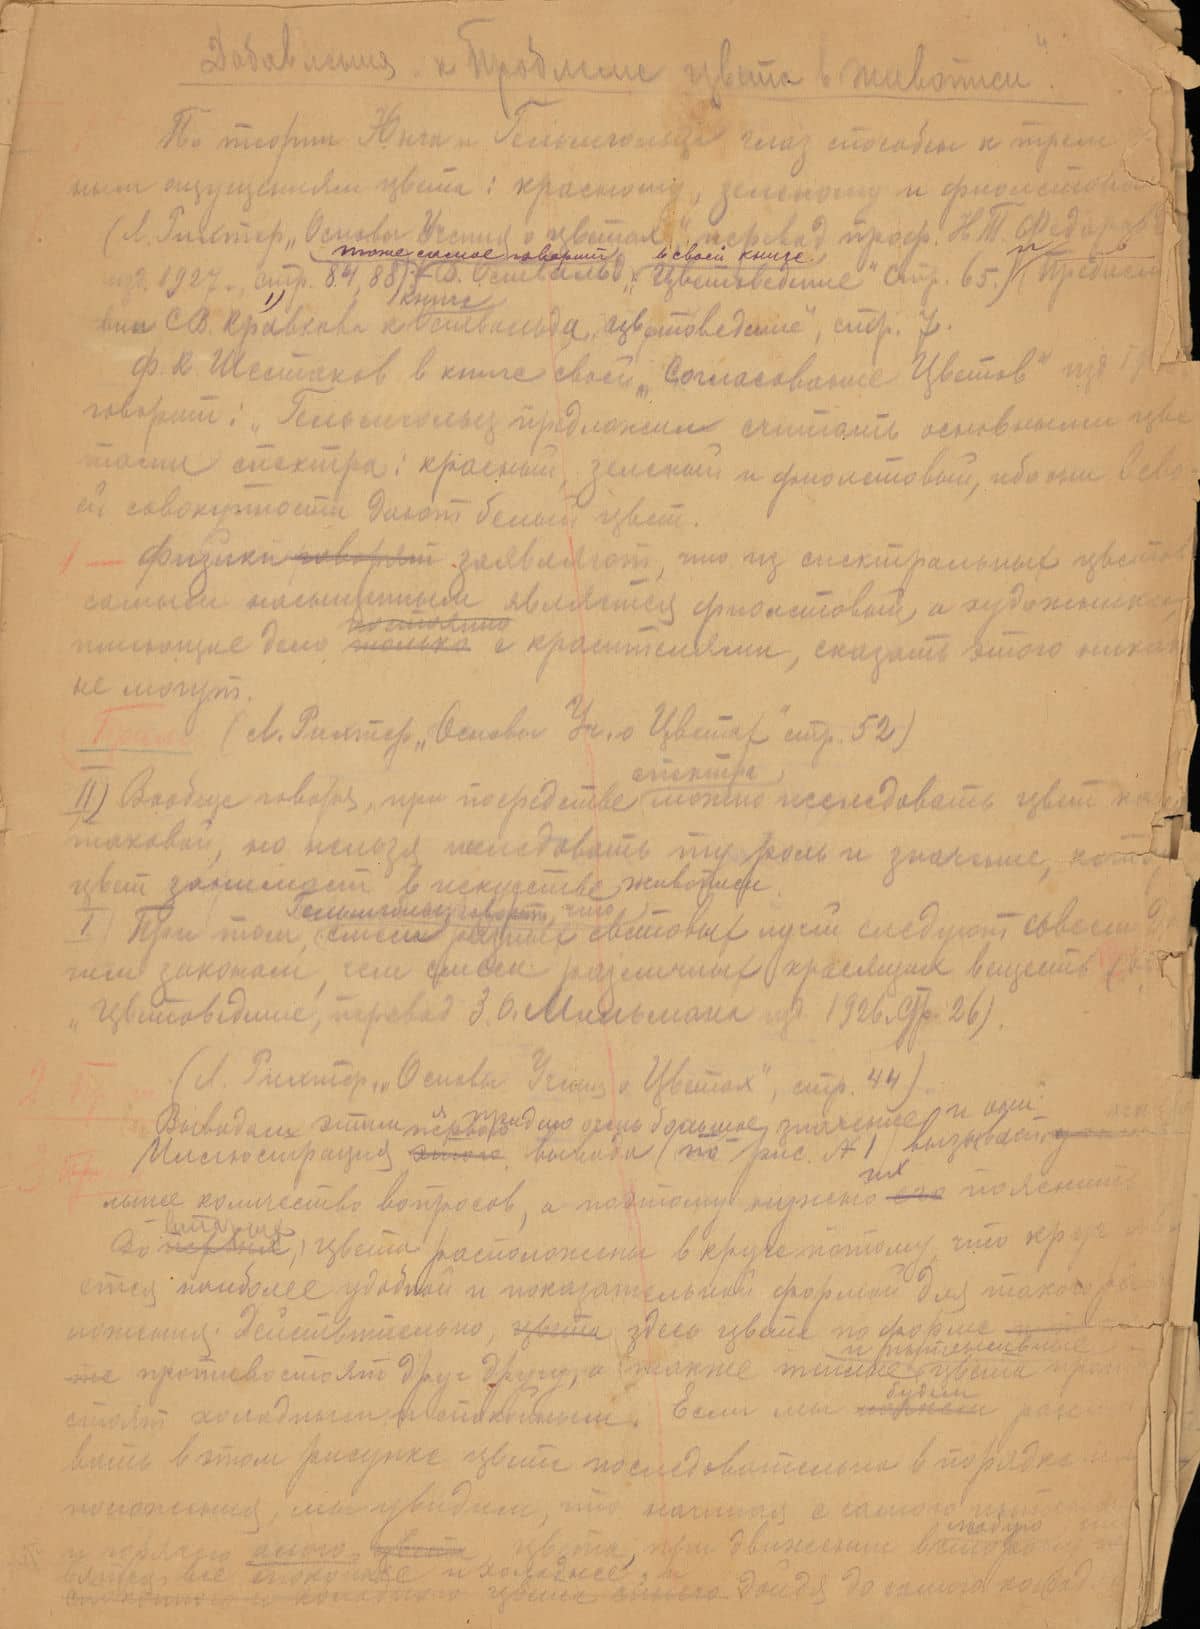 Добавления к "Проблеме цвета в живописи".
По теории Юнга и Гельмгольца глаз способен к трем
ным ощущениям цвета: красному, зеленому и фиолетово
(Л. Рихтер „Основы Учения о цветах", перевод проф. Н.Т. Федорова
тоже самое говорит в своей книге
изд. 1927 г., стр. 84, 88) В. Оствальд, „Цветоведение" стр. 65.) (Предисло
книге
вии С.В. Кравкова к Оствальда „Цветоведение", стр. 7.
Ф.К. Шестаков в книге своей „Согласование Цветов" изд
говорит: „Гельмгольц предложил считать основными цве
тами спектра: красный, зеленый и фиолетовый, ибо они в сво
ей совокупности дают белый цвет.
1 — Физики говорят заявляют, что из спектральных цветов
самым насыщенным является фиолетовый, а художники,
постоянно
имеющие дело только с красителями, сказать этого никак
не могут.
(Л. Рихтер „Основы Уч. о Цветах" стр. 52)
спектра,
II) Вообще говоря, при посредстве можно исследовать цвет как
таковой, но нельзя исследовать ту роль и значение, кото
цвет занимает в искусстве живописи.
Гельмгольц говорит, что
I) При том, смеси разных световых лучей следуют совсем др
гим законам, чем смеси различных красящих веществ
„Цветоведение", перевод З.О. Мильмана изд. 1926 стр. 26).
2
(Л. Рихтер „Основы Учения о Цветах", стр. 44)
Выводам этим я придаю очень большое значение и они
3 Иллюстрация этого вывода (на рис. № 1) вызывает
их
льшое количество вопросов, а поэтому нужно его пояснить
Во первых, цвета расположены в круге потому, что круг
ется наиболее удобной и показательной формой для такого ра
ложения. Действительно, цвета здесь цвета по форме
же противостоят друг другу, а также теплые цвета проти
будем
стоят холодным и спокойным. Если мы начнем расс
вать в этом рисунке цвета последовательно в порядке их
положения, мы увидим, что начиная с самого
любую
и горячего цвета, при движении в сторону
все спокойнее и холоднее, и
спокойного и холодного цвета синего дойдя до самого холод